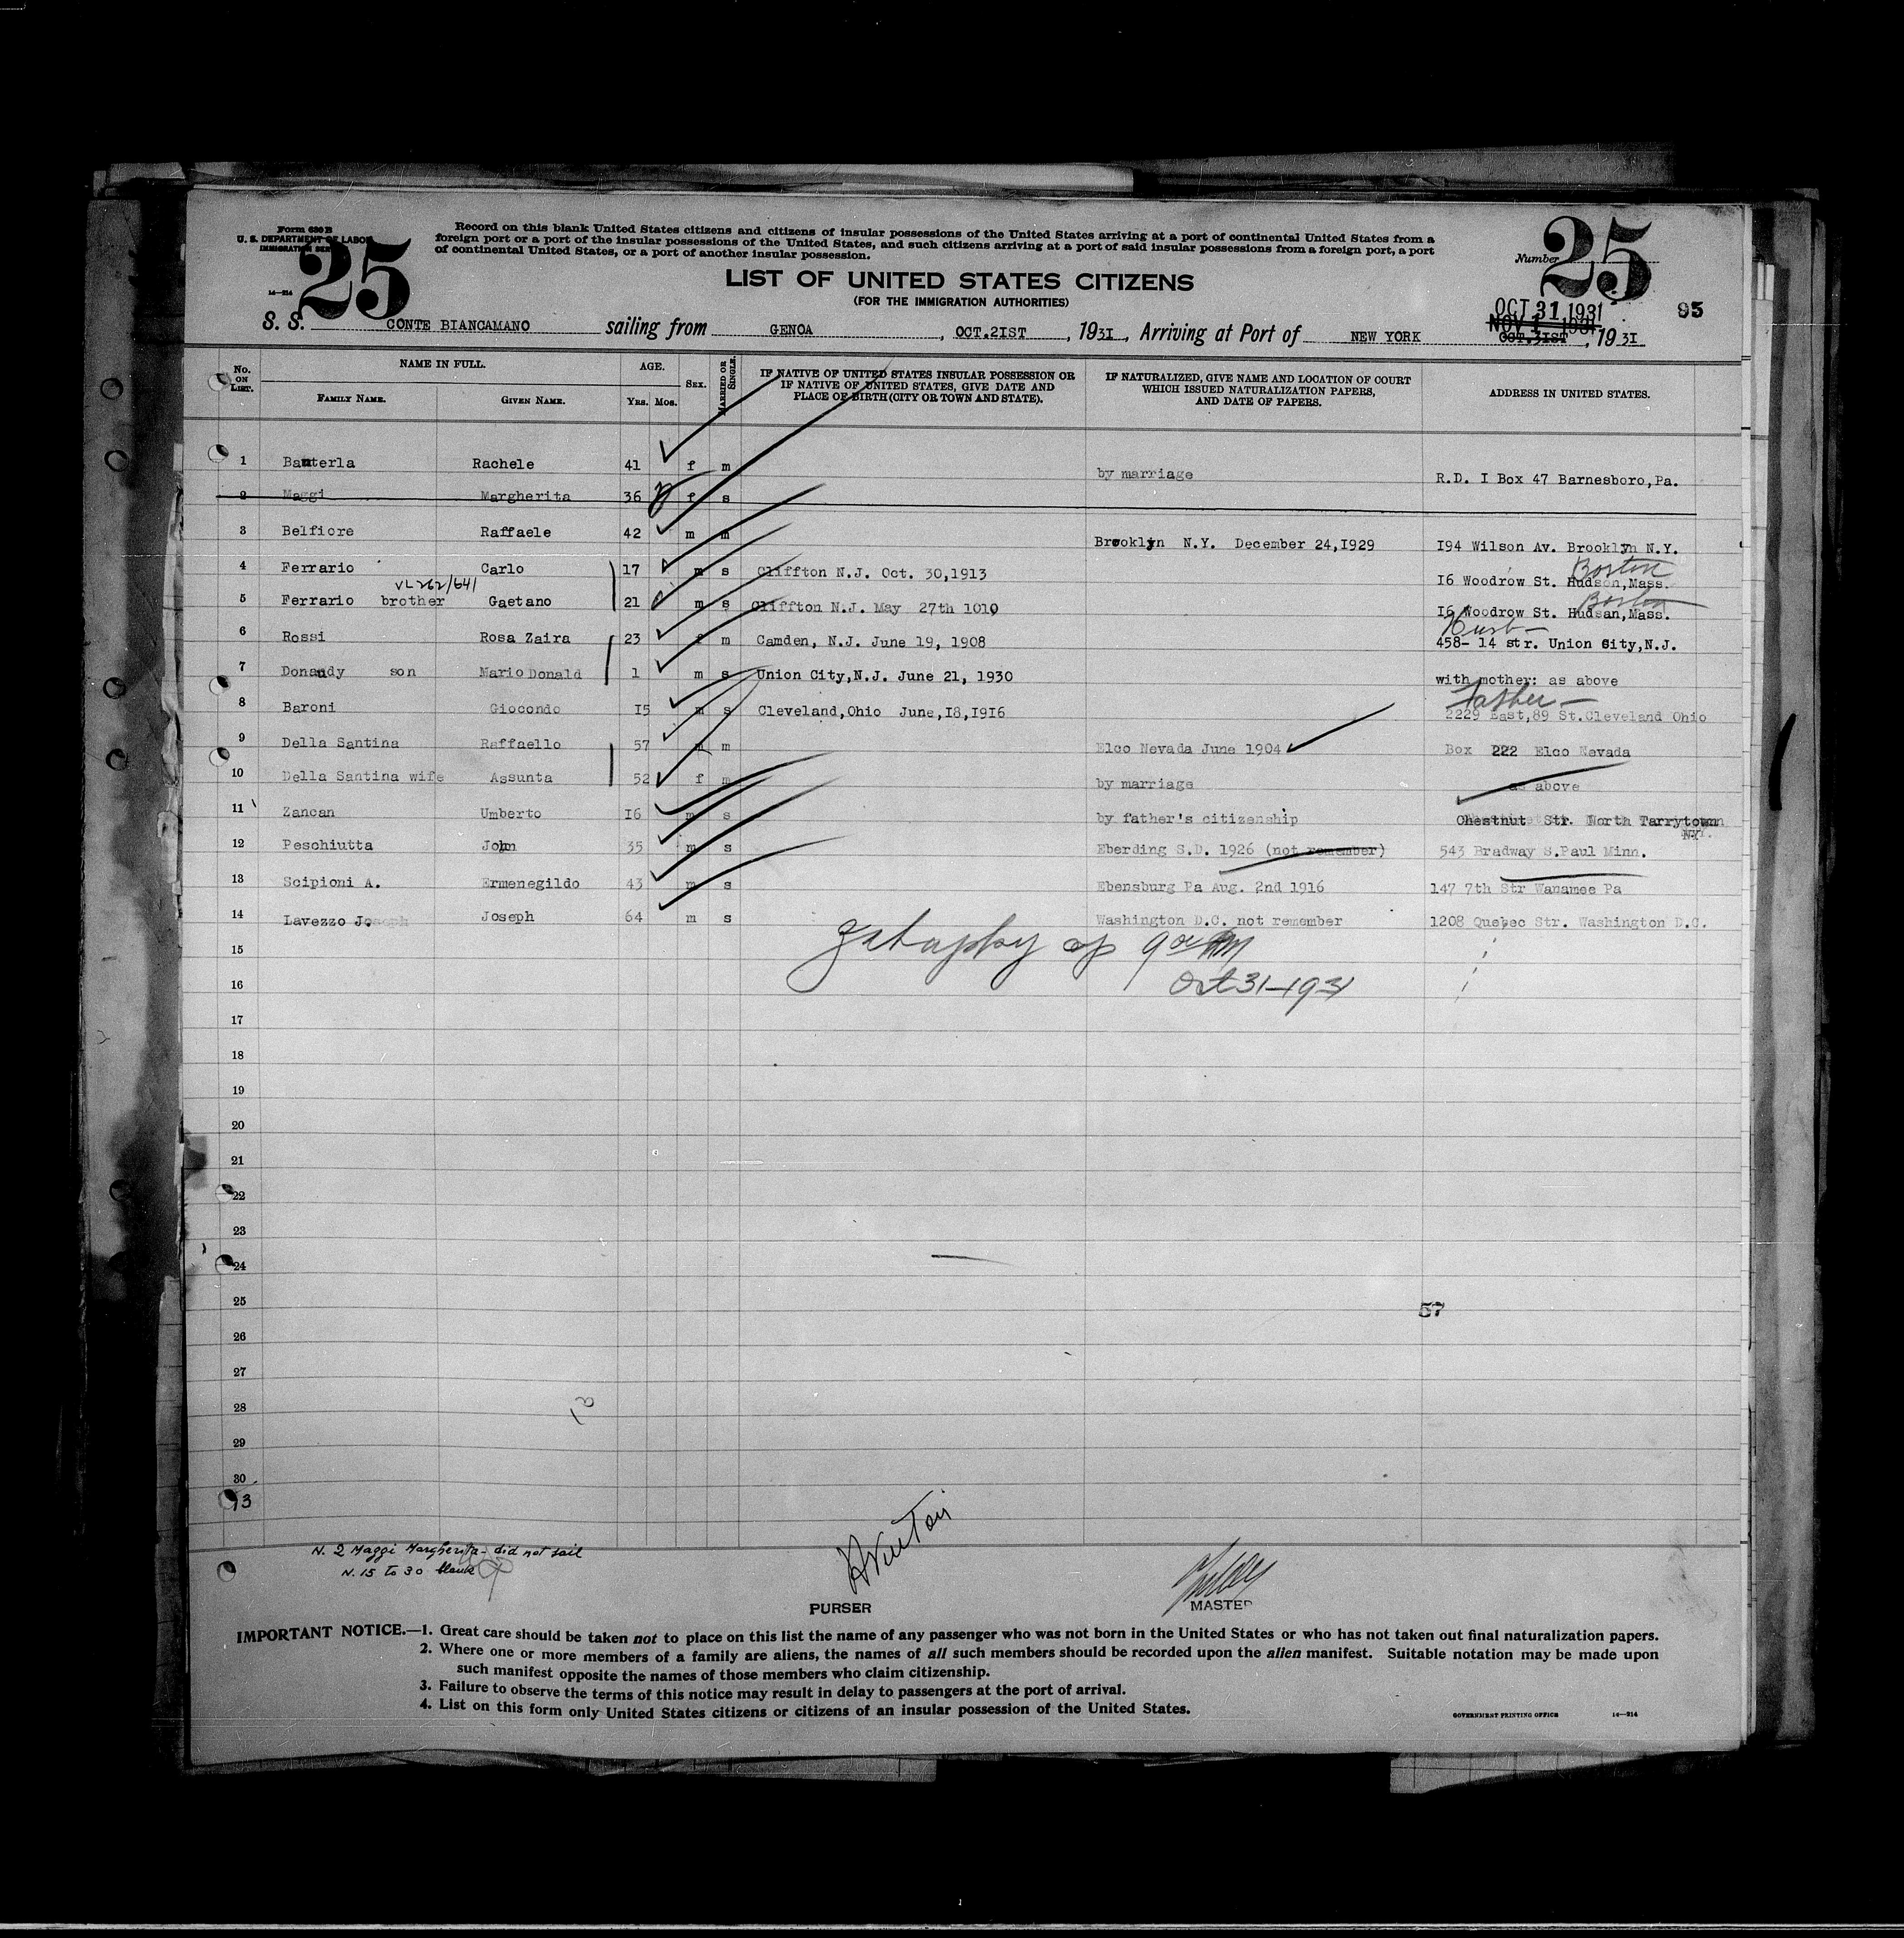 Form 630 B
U. S. DEPARTMENT OF LABOR
IMMIGRATION SERVICE
14—214
25
Record on this blank United States citizens and citizens of insular possessions of the United States arriving at a port of continental United States from a
foreign port or a port of the insular possessions of the United States, and such citizens arriving at a port of said insular possessions from a foreign port, a port
of continental United States, or a port of another insular possession.
LIST OF UNITED STATES CITIZENS
(FOR THE IMMIGRATION AUTHORITIES)
Number 25
95
OCT 31 1931
NOV 1 1931
S. S. CONTE BIANCAMANO sailing from GENOA, OCT.2IST, 193I, Arriving at Port of NEW YORK OCT.3IST, 193I
No. ON LIST. NAME IN FULL. FAMILY NAME. GIVEN NAME. AGE. YRS. MOS. SEX. MARRIED OR SINGLE. IF NATIVE OF UNITED STATES INSULAR POSSESSION OR IF NATIVE OF UNITED STATES, GIVE DATE AND PLACE OF BIRTH (CITY OR TOWN AND STATE). IF NATURALIZED, GIVE NAME AND LOCATION OF COURT WHICH ISSUED NATURALIZATION PAPERS, AND DATE OF PAPERS. ADDRESS IN UNITED STATES.
1 Bauterla Rachele 41 f m by marriage R.D. I Box 47 Barnesboro,Pa.
2 Maggi Margherita 36 f s
3 Belfiore Raffaele 42 m m Brooklyn N.Y. December 24,1929 I94 Wilson Av. Brooklyn N.Y.
Boston
4 Ferrario Carlo 17 m s Cliffton N.J. Oct. 30,1913 I6 Woodrow St. Hudson,Mass.
VL262/641
Boston
5 Ferrario brother Gaetano 21 m s Cliffton N.J. May 27th 1010 I6 Woodrow St. Hudsan,Mass.
Husb—
6 Rossi Rosa Zaira 23 f m Camden, N.J. June 19, 1908 458- 14 str. Union City,N.J.
7 Donandy son Mario Donald 1 m s Union City,N.J. June 21, 1930 with mother: as above
Father—
8 Baroni Giocondo I5 m s Cleveland,Ohio June,I8,I9I6 2229 East,89 St.Cleveland Ohio
9 Della Santina Raffaello 57 m m Elco Nevada June 1904 Box 222 Elco Nevada
10 Della Santina wife Assunta 52 f m by marriage as above
11 Zancan Umberto I6 m s by father's citizenship Chestnut Str. North Tarrytown
NY.
12 Peschiutta John 35 m s Eberding S.D. 1926 (not remember) 543 Bradway S.Paul Minn.
13 Scipioni A. Ermenegildo 43 m s Ebensburg Pa Aug. 2nd 1916 147 7th Str Wanamee Pa
14 Lavezzo Joseph Joseph 64 m s Washington D.C. not remember 1208 Quebec Str. Washington D.C.
15
Oct 31-1931
16
17
18
19
20
21
22
23
24
25
57
26
27
28
29
30
13
N. 2 Maggi Margherita - did not sail
N. 15 to 30 blank
PURSER
MASTER
IMPORTANT NOTICE.—1. Great care should be taken not to place on this list the name of any passenger who was not born in the United States or who has not taken out final naturalization papers.
2. Where one or more members of a family are aliens, the names of all such members should be recorded upon the alien manifest. Suitable notation may be made upon
such manifest opposite the names of those members who claim citizenship.
3. Failure to observe the terms of this notice may result in delay to passengers at the port of arrival.
4. List on this form only United States citizens or citizens of an insular possession of the United States.
GOVERNMENT PRINTING OFFICE 14—214